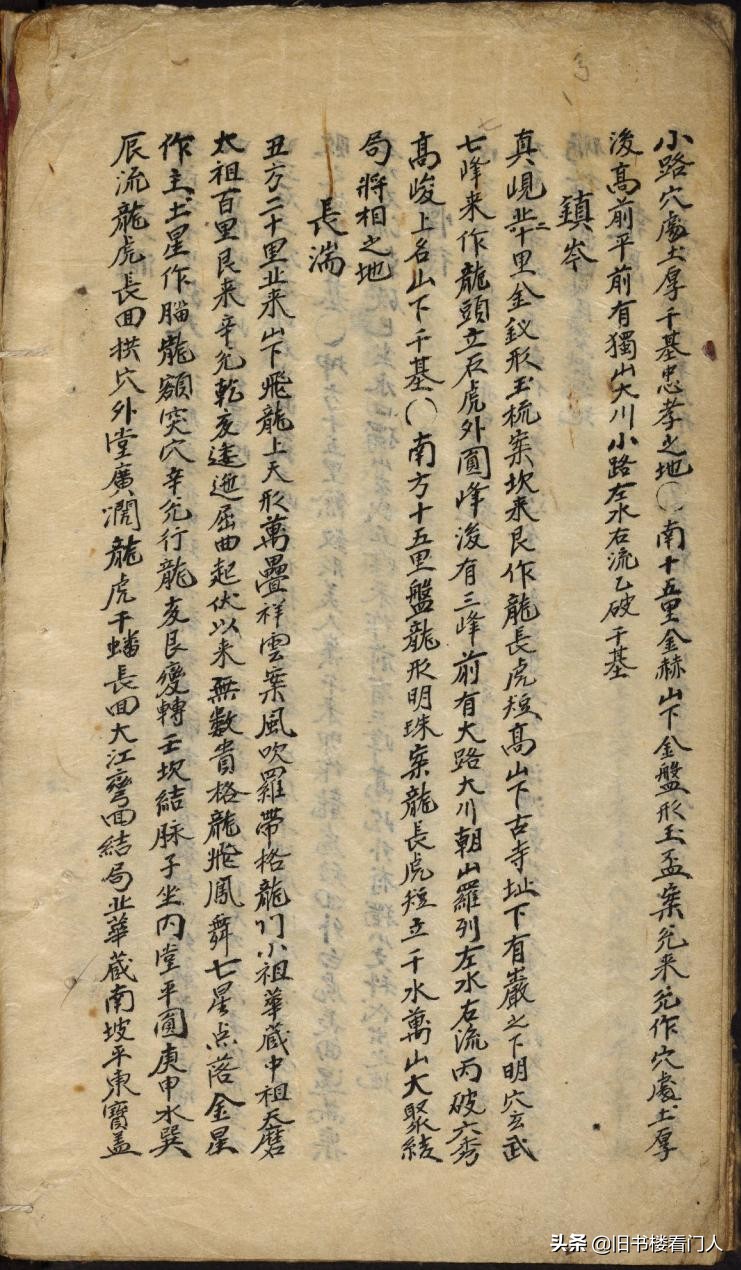 小路穴處土厚千基忠孝之地〇南十五里金赫山下金盤形玉盃案兊来兊作穴處土厚
後高前平前有獨山大川小路左水右流乙破千基
鎮岑
真峴北二十里金釵形玉梳案坎来艮作龍長虎短高山下古寺址下有巖之下明穴玄武
七峰来作龍頭立石虎外圓峰後有三峰前有大路大川朝山羅列左水右流丙破六秀
高峻上名山下千基〇南方十五里盤龍形明珠案龍長虎短立千水萬山大聚結
局將相之地
長湍
丑方二十里北来山下飛龍上天形萬疊祥雲案風吹羅帶格龍门小祖華蔵中祖天磨
太祖百里艮来辛兊乾亥逶迤屈曲起伏以来無数貴格龍飛鳳舞七星点落金星
作主土星作腦龍額突穴辛兊行龍亥艮變轉壬坎結脉子坐内堂平圓庚申水巽
辰流龍虎長回拱穴外堂廣濶龍虎千蟠長回大江彎回結局北華蔵南坡平東寶盖
头条 @旧书楼看门人